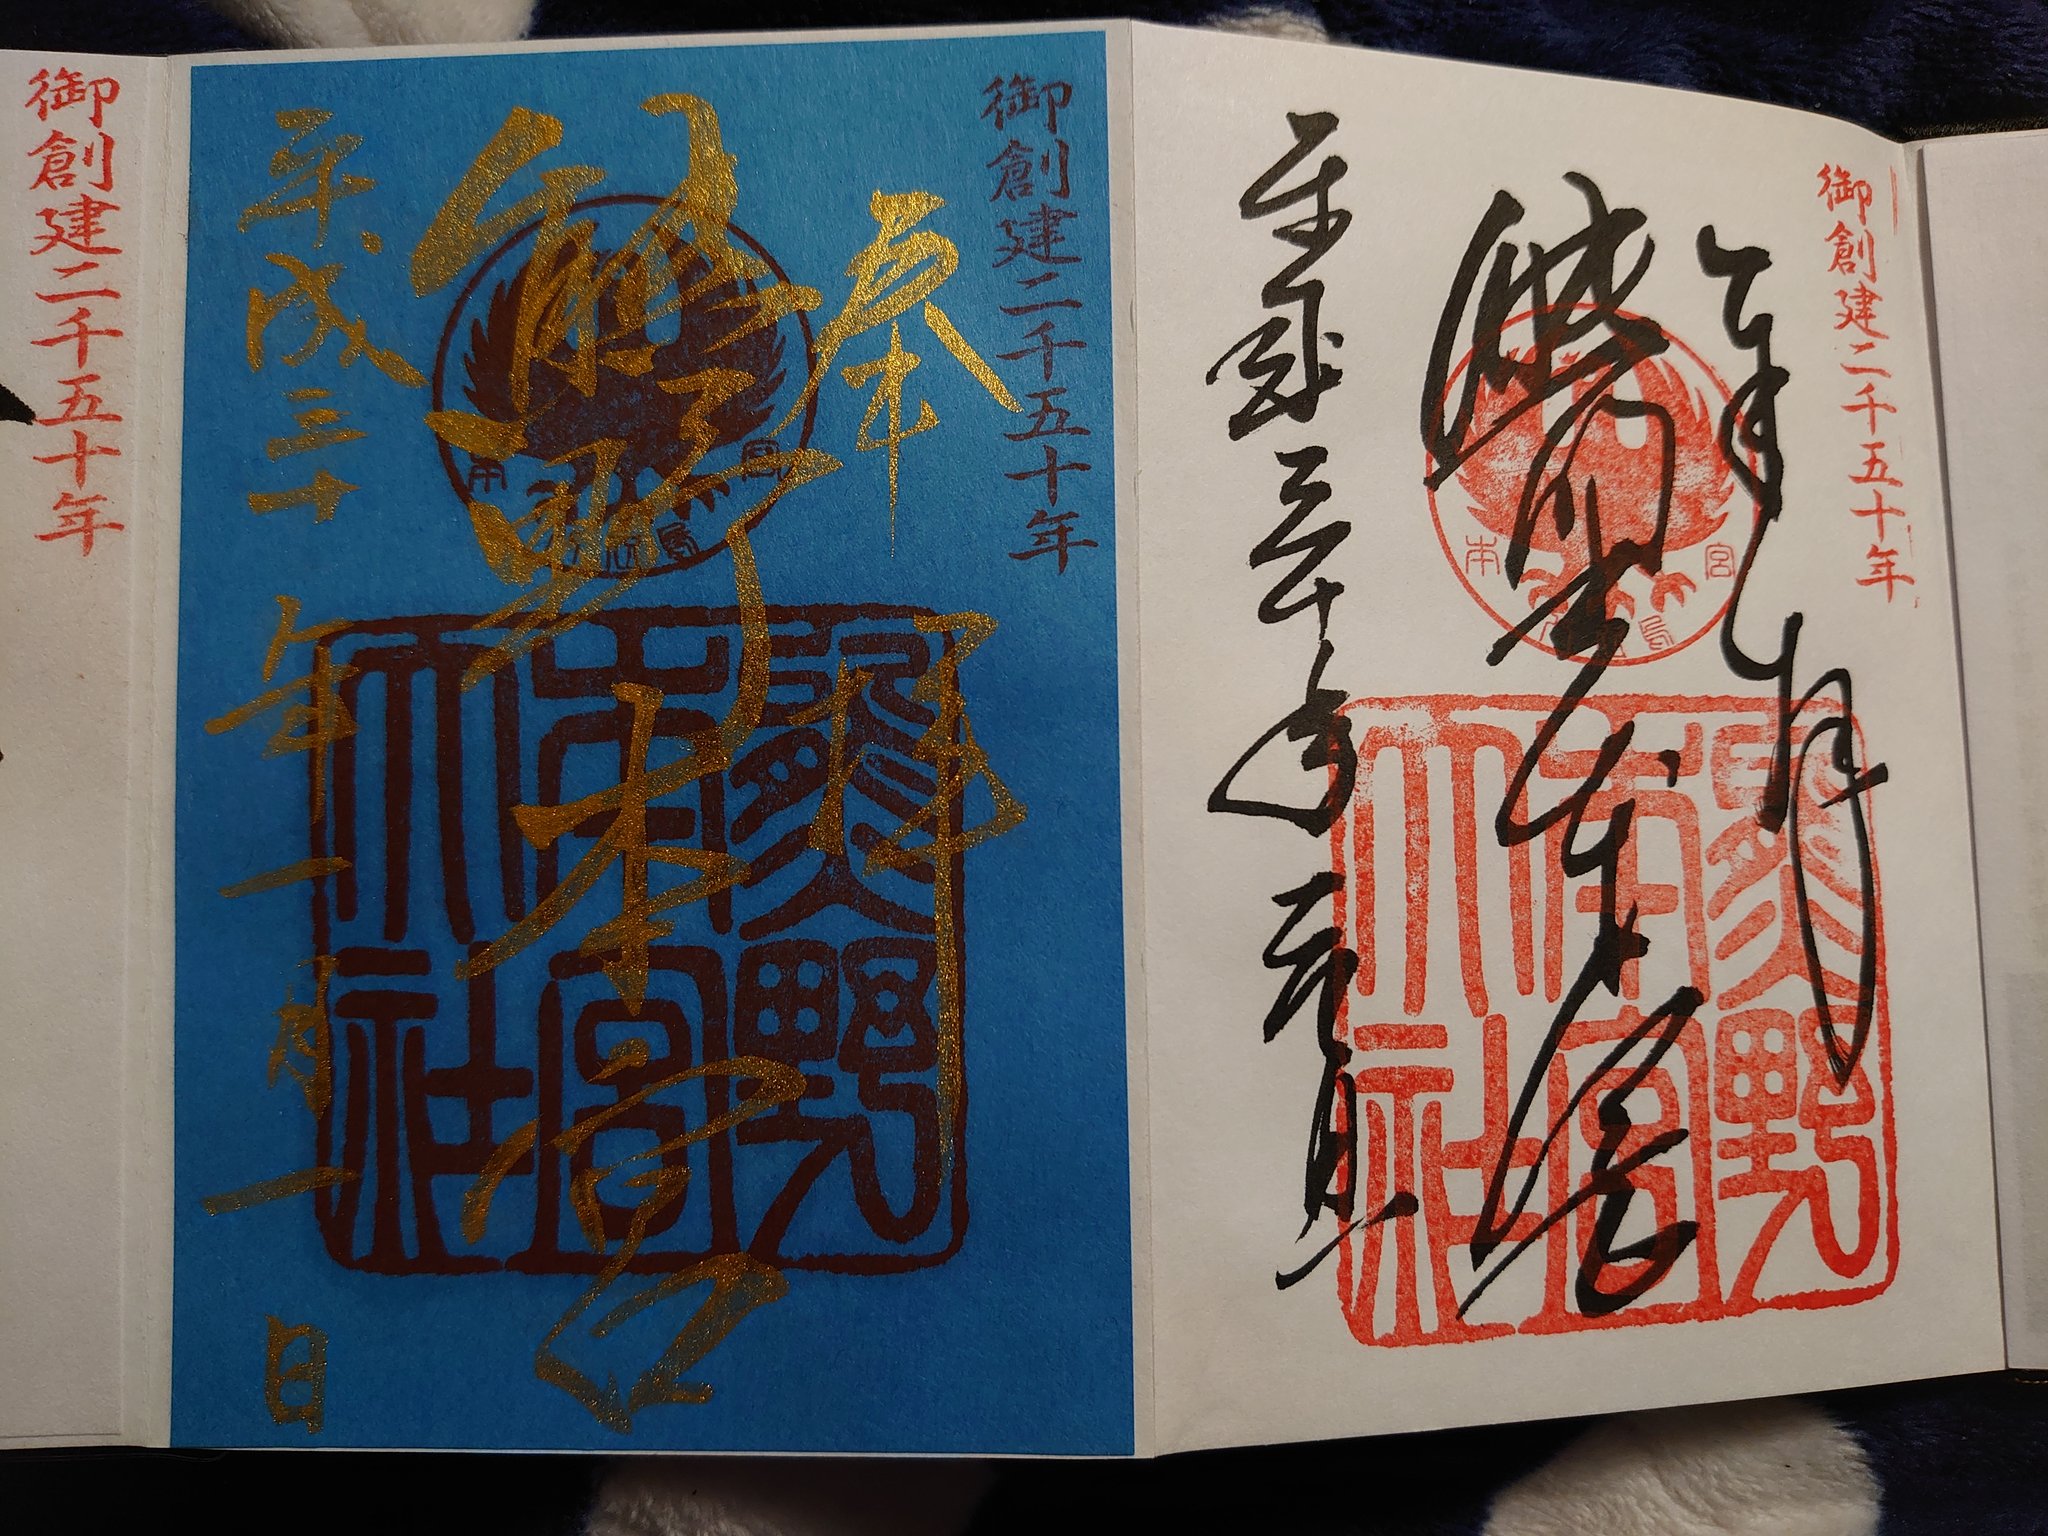 御創建二千五十年
奉拝
熊野本宮
平成三十年元旦
本宮
熊野
本宮
大社
御創建二千五十年
奉拝
熊野本宮
平成三十年一月一日
本宮
熊野
本宮
大社
御創建二千五十年